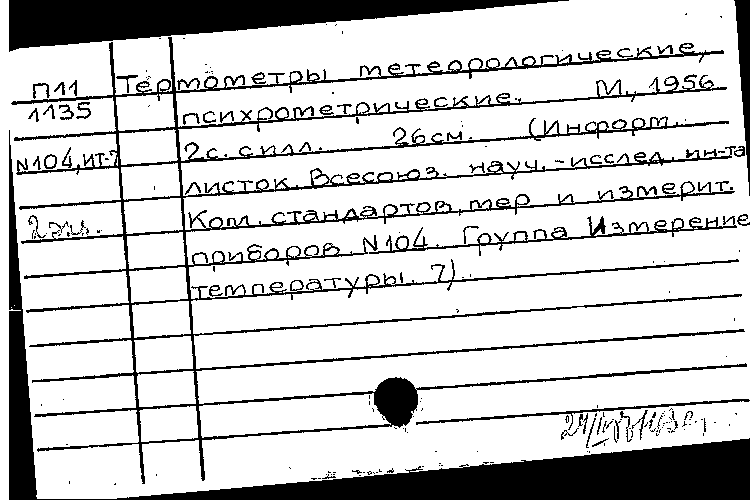 П11 Термометры метеорологические,
1135 психрометрические. М., 1956
2с. с илл. 26см. (Информ.
N104, ИТ-7 листок. Всесоюз. науч.-исслед. ин-та
2 экз. Ком. стандартов, мер и измерит.
приборов. N104. Группа Измерение
температуры. 7).